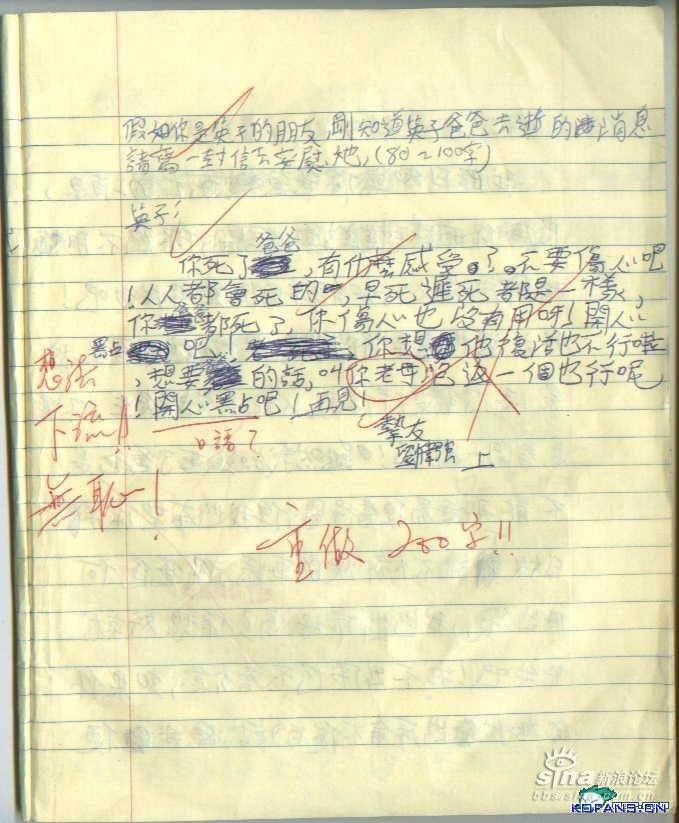 假如你是英子的朋友,剛知道英子爸爸去逝的消息
請寫一封信去安慰她,(80~100字)
英子:
爸爸
你死了,有什麼感受了。不要傷心吧
!人人都會死的,早死遲死都是一樣,
你都死了,你傷心也沒有用呀!開心
點吧,你想他復活也不行啦
,想要的話,叫你老母返一個也行呢
!開心點吧!再見!
摯友
上
想法
下流!!
無恥!
口話?
重做 200字!!
sina 新浪论坛
bbs.sina.com.cn
KOFANS.CN